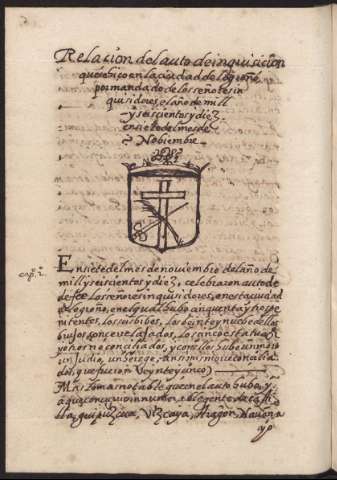 Relacion del auto de inquisicion
que se hiço en la ciudad de logroño
por mandado de los señores in
quisidores, el año de mill
y seiscientos y diez
en siete del mes de
Nobiembre
cap.º 1.º
En siete del mes de noviembre del año de
mill y seiscientos y diez, celebraron auto de
fee los señores inquisidores, en esta ciudad
de logroño, en el qual hubo çinquenta y tres pe
nitentes, los seis bibos, los beinte y nuebe de los
bujos con çe relajados, los çinco estatuas
y ochos rreconciliados, y con ellos hubo un moro
un judio, un herege,
dos, que fueron Veynte y cinco)
notable que en el auto hubo, y
a que concurrio innumerable gente de casti
lla, guipuzcua, Vizcaya, Aragon, Navarra
yo